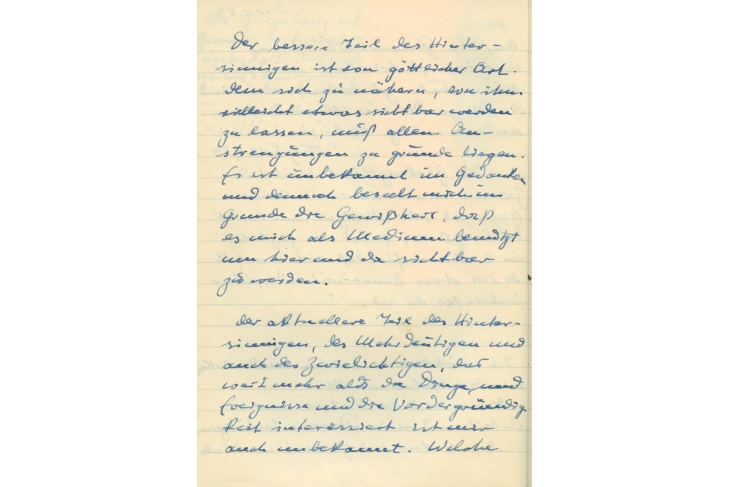 Der bessere Teil des Hinter-
sinnigen ist von göttlicher Art.
dem sich zu nähern, von ihm
vielleicht etwas sichtbar werden
zu lassen, muß allen An-
strengungen zu grunde liegen.
Es ist unbekannt im Gedanken
und dennoch beseelt mich im
Grunde die Gewißheit, daß
es mich als Medium benützt
um hier und da sichtbar
zu werden.
Der aktuellere Teil des Hinter-
sinnigen, des Mehrdeutigen und
auch des Zwielichtigen, das
weit mehr als die Dinge und
Ereignisse und die Vordergründig
keit interessiert ist mir
auch unbekannt. Welche